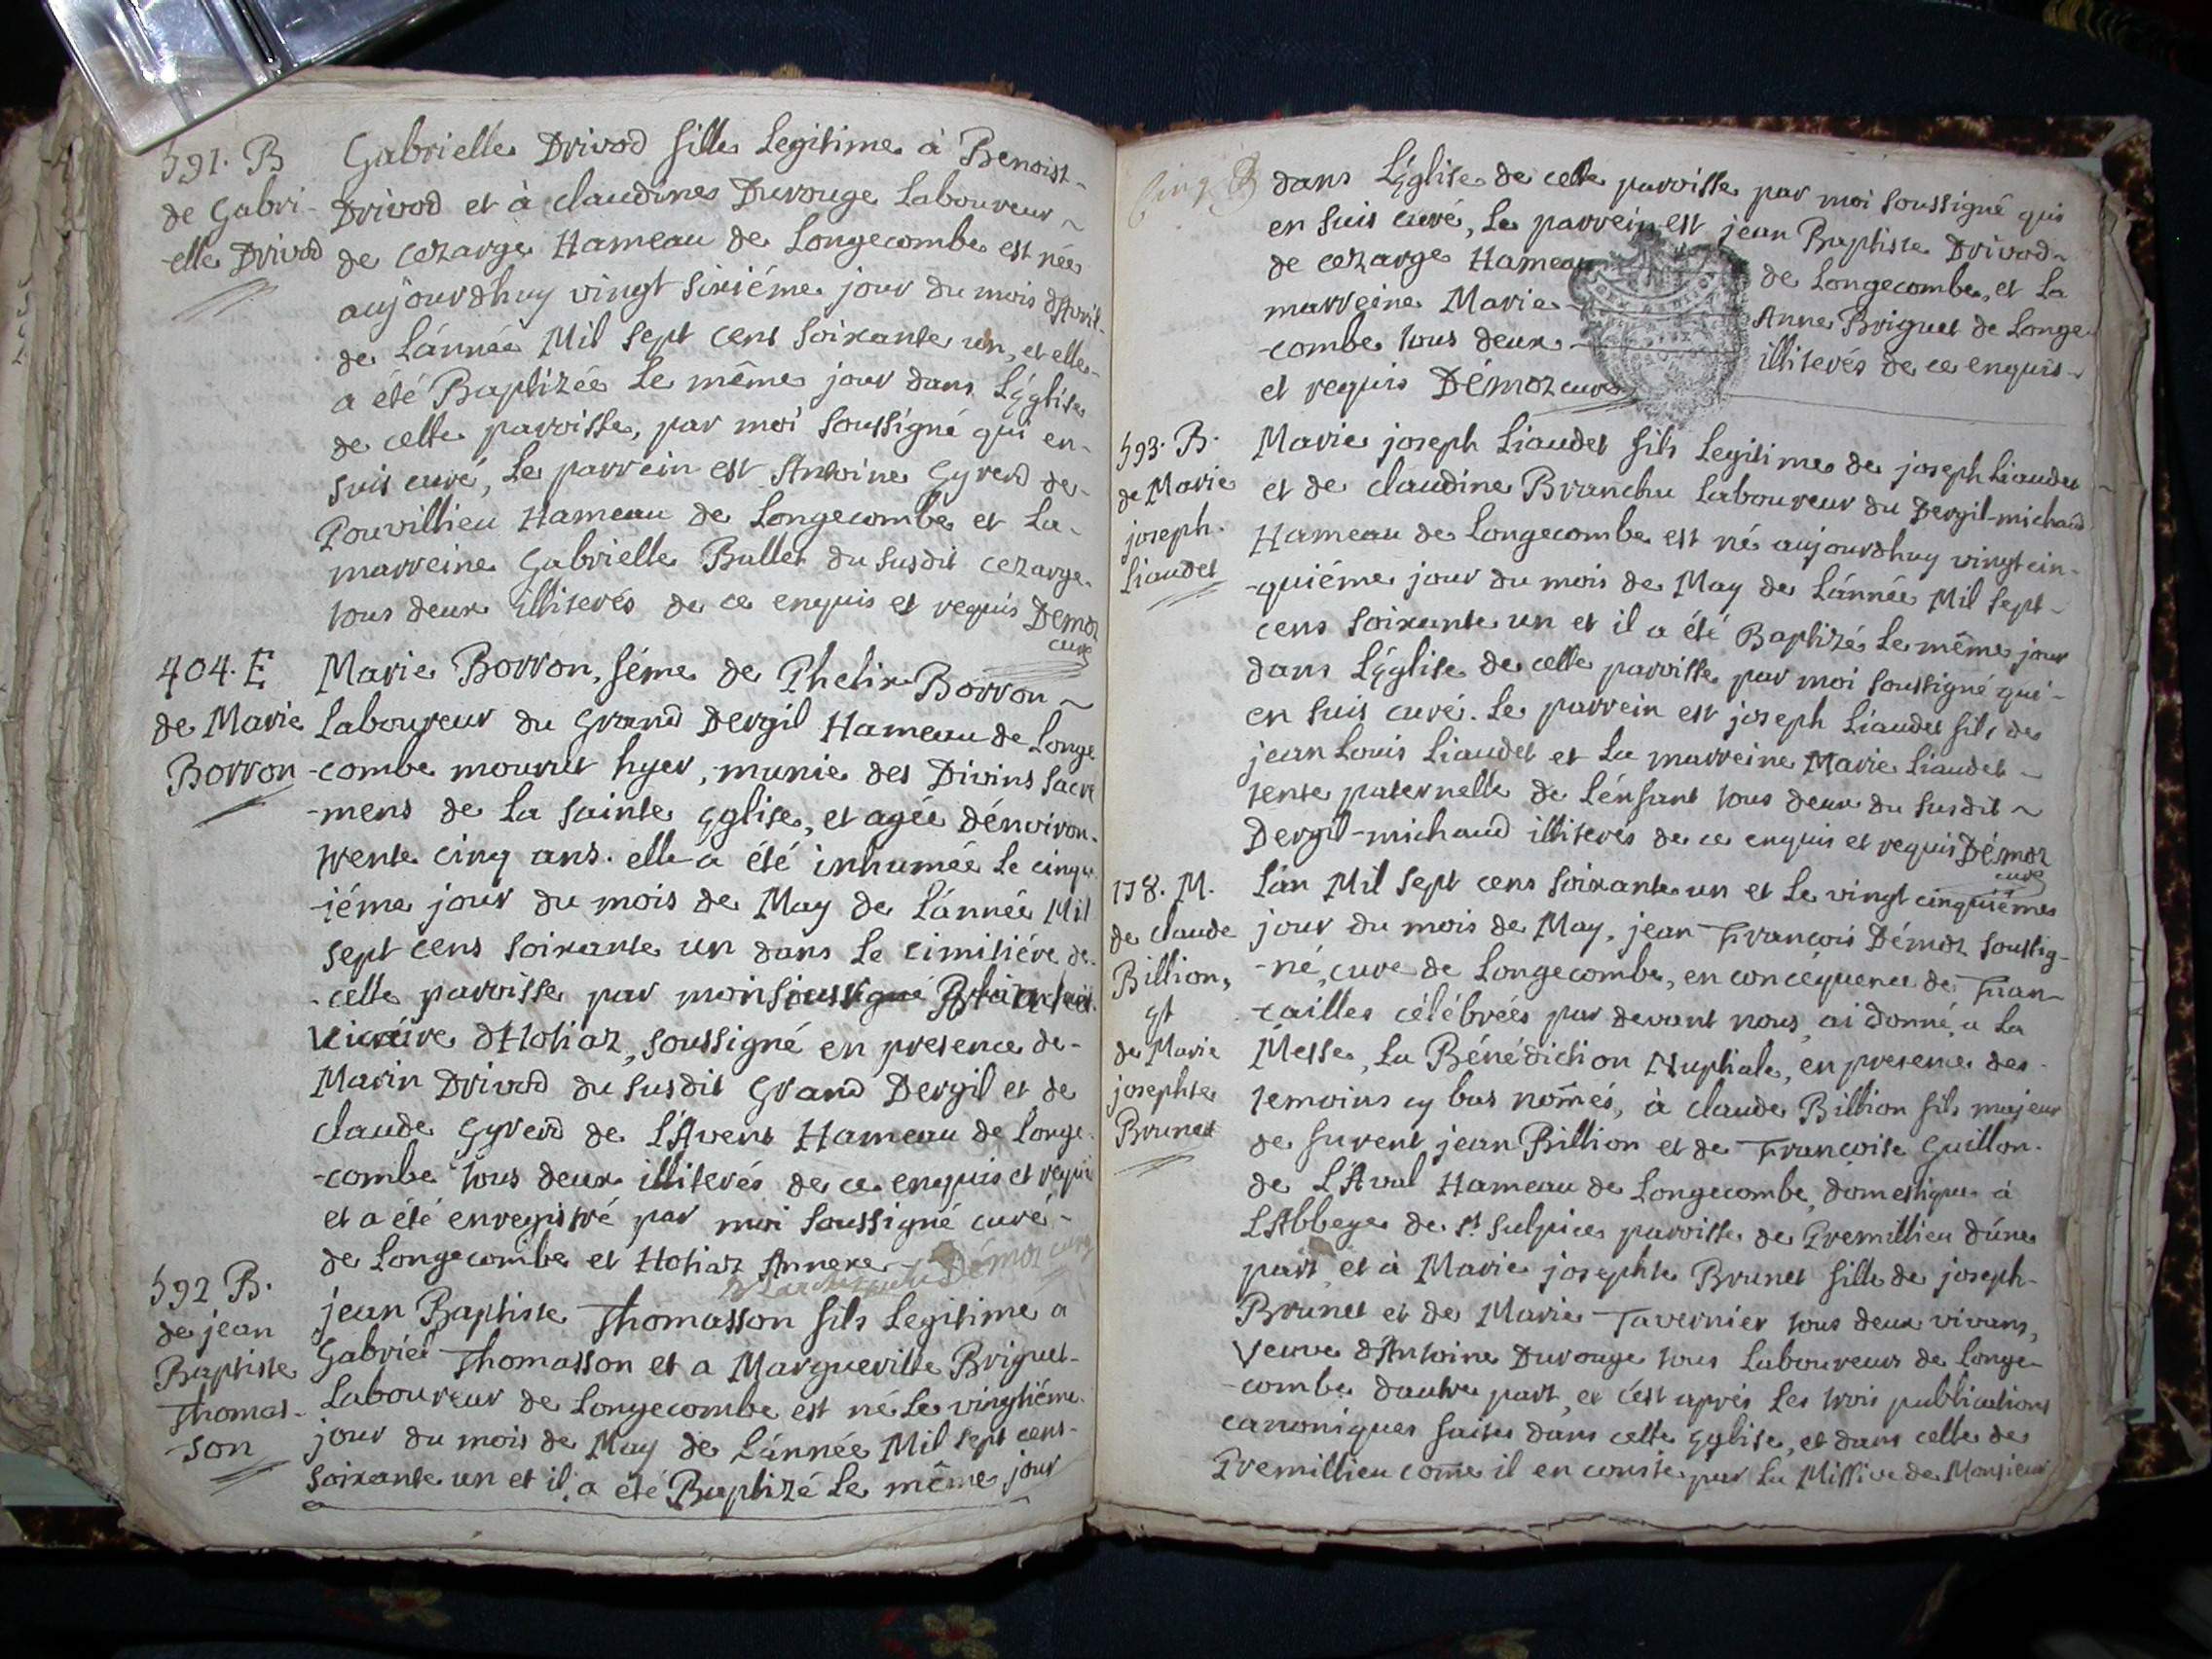 591. B
de Gabri-
-elle Drivod
Gabrielle Drivod fille Legitime à Benoist-
Drivod et à claudine Durouge Laboureur ~
de cezarge Hameau de Longecombe est née
aujourdhuy vingt sixiéme jour du mois d'Avril-
de L'année Mil sept cens soixante un, et elle-
a été Baptizée Le même jour dans L'Eglise
de cette paroisse, par moi soussigné qui en-
suis curé, Le parrein est Antoine Gyrerd de-
Pouvillieu Hameau de Longecombe et La-
marreine Gabrielle Bullet du susdit cezarge-
tous deux illiterés de ce enquis et requis Démoz
curé
404. E
de Marie
Borron
Marie Borron, féme de Phelix Borron ~
Laboureur du Grand Dergil Hameau de Longe
-combe mourut hyer, munie des Divins sacre
-mens de La sainte Eglise, et agée d'énviron-
trente cinq ans. elle a été inhumée Le cinqu
-iéme jour du mois de May de L'année Mil
sept cens soixante un dans Le cimitiére de-
-cette paroisse par
Vicaire d'Hotiaz, soussigné en presence de-
Marin Drivod du susdit Grand Dergil et de
claude Gyrerd de L'Avent Hameau de Longe-
-combe tous deux illiterés de ce enquis et requi
et a été enregistré par moi soussigné curé-
de Longecombe et Hotiaz Annexe- Démoz curé
592 B.
de jean
Baptiste
Thomas-
-son
jean Baptiste Thomasson fils Legitime a
Gabriel Thomasson et a Margueritte Briguet-
Laboureur de Longecombe est né Le vingtiéme-
jour du mois de May de L'année Mil sept cens-
soixante un et il a été Baptizé Le même jour
dans L'Eglise de cette paroisse par moi soussigné qui
en suis curé, Le parrein est jean Baptiste Drivod~
de cezarge Hameau de Longecombe, et La
marreine Marie- Anne Briguet de Longe-
-combe tous deux- illiterés de ce enquis-
et requis Démoz curé
593. B.
de Marie
joseph.
Liaudet
Marie joseph Liaudet fils Legitime de joseph Liaudet
et de claudine Branchu Laboureur du Dergil-michaud
Hameau de Longecombe est né aujourdhuy vingt cin-
-quiéme jour du mois de May de L'année Mil sept-
cens soixante un et il a été Baptizé Le même jour
dans L'Eglise de cette paroisse par moi soussigné qui-
en suis curé. Le parrein est joseph Liaudet fils de
jean Louis Liaudet et La marreine Marie Liaudet-
tente paternelle de L'énfant tous deux du susdit ~
Dergil-michaud illiterés de ce enquis et requis Démoz
curé
178. M.
de claude
Billion,
et
de Marie
josephte
Brunet
L'an Mil sept cens soixante un et Le vingt cinquiéme
jour du mois de May, jean François Démoz soussig-
-né, curé de Longecombe, en concéquence de Fian-
-cailles célébrées par devant nous, ai donné, a La
Messe, La Bénédiction Nuptiale, en presence des-
temoins cy bas només, à claude Billion fils majeur
de furent jean Billion et de Françoise Guillon.
de L'Aval Hameau de Longecombe, domestique à
L'Abbeye de st. sulpice paroisse de Premillieu d'úne
part, et à Marie josephte Brunet fille de joseph-
Brunet et de Marie Tavernier tous deux vivans,
Veuve d'Antoine Durouge tous Laboureurs de Longe-
-combe dautre part, et c'est aprés Les trois publications
canoniques faites dans cette Eglise, et dans celle de
Premillieu come il en conste par La Missive de Monsieur